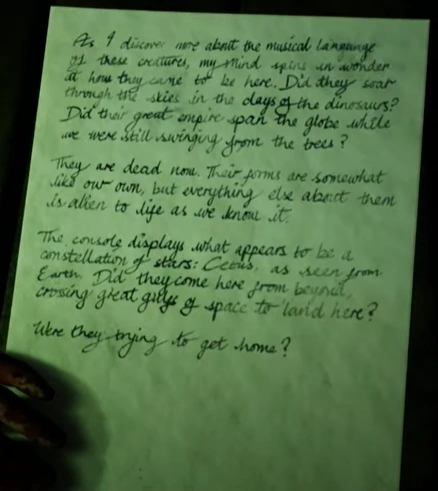 As I discover more about the musical language
of these creatures, my mind spins in wonder
at how they came to be here. Did they soar
through the skies in the days of the dinosaurs?
Did their great empire span the globe while
we were still swinging from the trees?
They are dead now. Their forms are somewhat
like our own, but everything else about them
is alien to life as we know it.
The console displays what appears to be a
constellation of stars: Cetus, as seen from
Earth. Did they come here from beyond,
crossing great gulfs of space to land here?
Were they trying to get home?